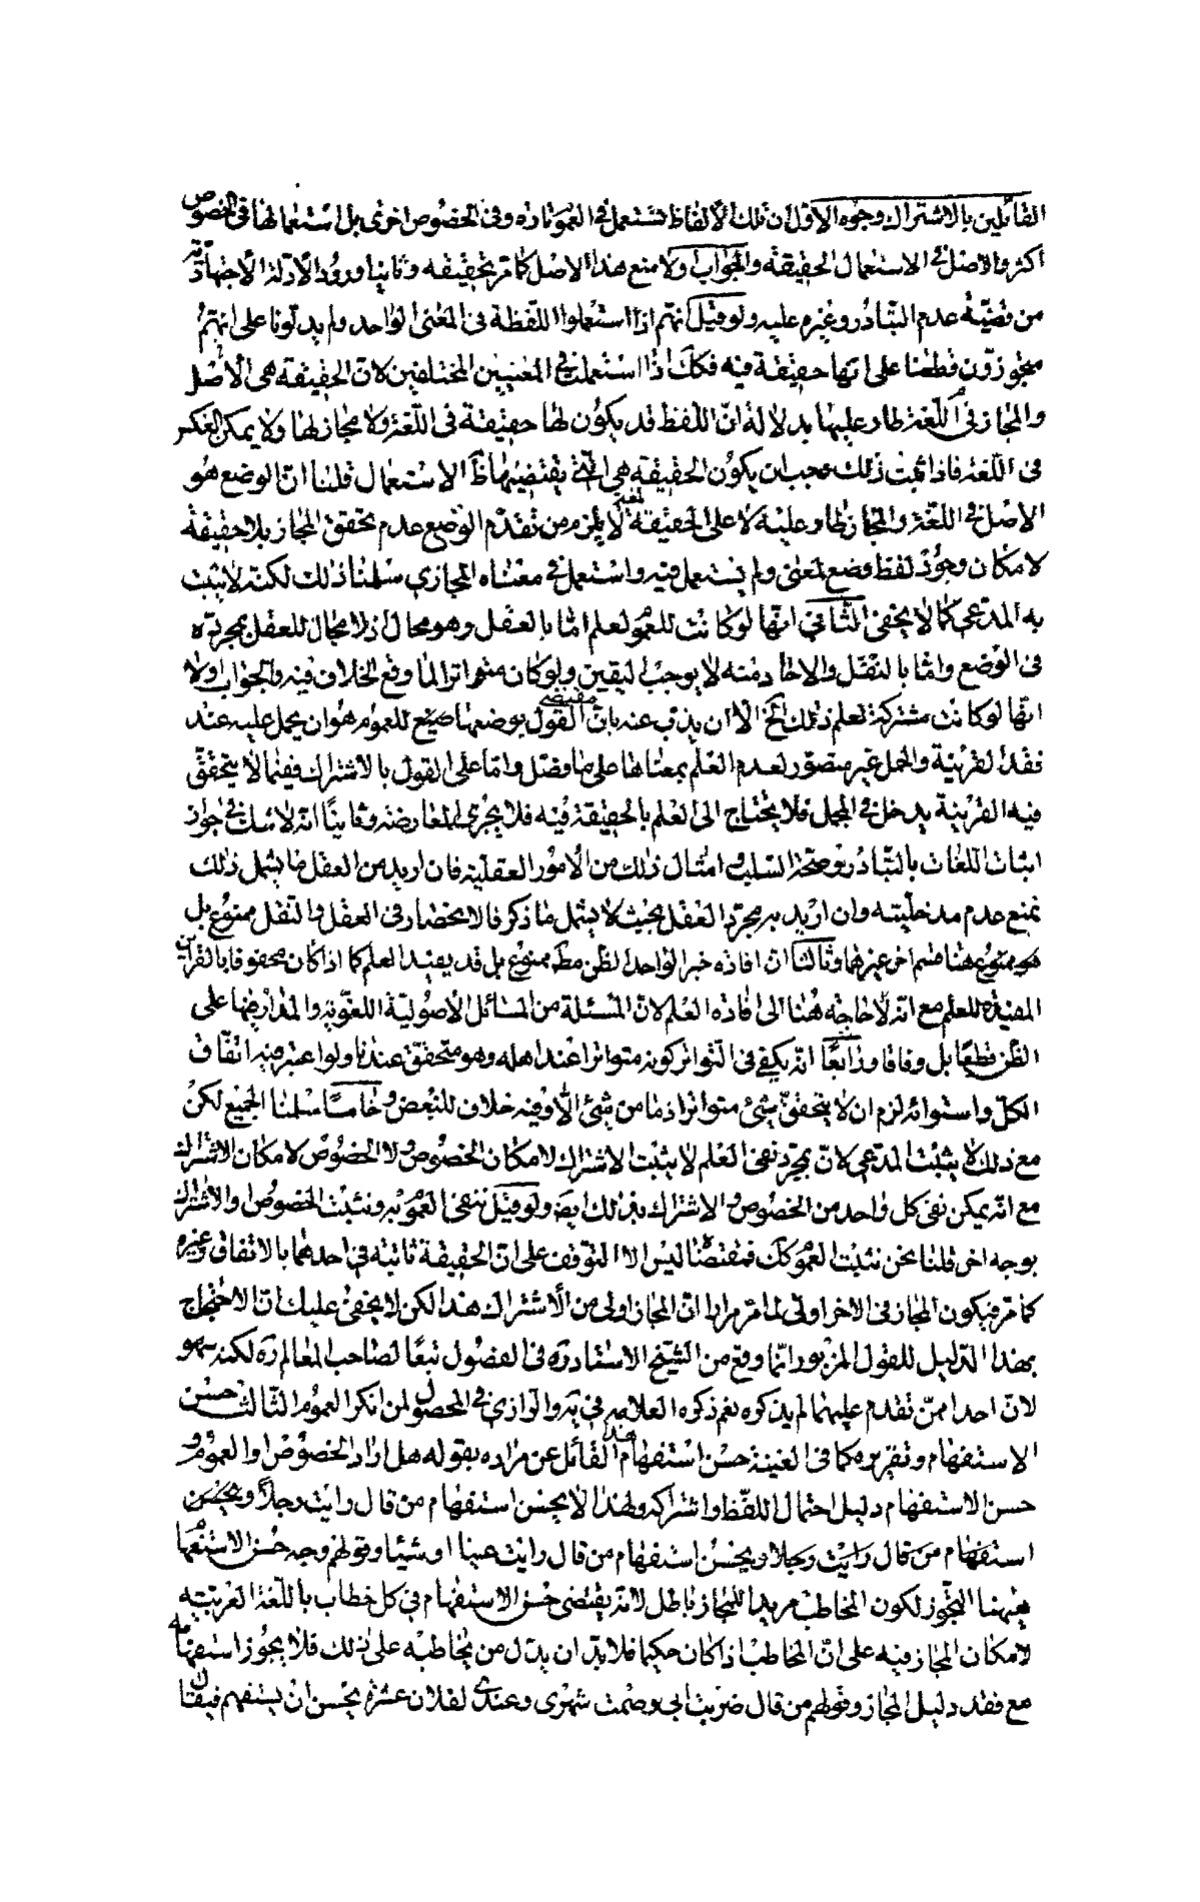 القائلين بالاشتراك وجوه الاول ان تلك الالفاظ تستعمل فى العموم تارة وفى الخصوص اخرى بل استعمالها فى الخصوص
اكثر والاصل فى الاستعمال الحقيقة والجواب اولا منع هذا الاصل كما مر تحقيقه وثانيا ورود الادلة الاجتهادية
من قضيّة عدم التبادر وغيره عليه ولو قيل انهم اذا استعملوا اللفظة فى المعنى الواحد ولم يدلونا على انهم
متجوزون قطعنا على انها حقيقة فيه فكك اذا استعملت فى المعنيين المختلفين لان الحقيقة هى الاصل
والمجاز فى اللغة طار عليها بدلالة انّ اللفظ قد يكون لها حقيقة فى اللغة ولا مجاز لها ولا يمكن العكس
فى اللغة فاذا ثبت ذلك وجب ان يكون الحقيقة هى التى يقتضيها ظ الاستعمال قلنا انّ الوضع هو
الاصل فى اللغة والمجاز طار عليه لا على الحقيقة لا يلزم من تقدم الوضع عدم تحقق المجاز بلا حقيقة
لامكان وجود لفظ وضع لمعنى ولم يستعمل فيه واستعمل فى معناه المجازى سلمنا ذلك لكنه لا يثبت
به المدّعى كما لا يخفى الثانى انها لو كانت للعموم لعلم امّا بالعقل وهو محال اذ لا مجال للعقل بمجرّده
فى الوضع وامّا بالنقل والاحاد منه لا يوجب اليقين ولو كان متواترا لما وقع الخلاف فيه والجواب اولا
انّها لو كانت مشتركة لعلم ذلك الخ الا ان يذب عنه بانّ مقتضى القول بوضعها صيغ للعموم هو ان يحمل عليه عند
فقد القرينة والحمل غير متصوّر لعدم العلم بمعناها على ما فصّل وامّا على القول بالاشتراك ففيما لا يتحقق
فيه القرينة يدخل فى المجمل فلا يحتاج الى العلم بالحقيقة فيه فلا يجرى المعارضة وثانيًا انّه لا شك فى جواز
اثبات اللغات بالتبادر وصحة السلب وامثال ذلك من الامور العقلية فان اريد من العقل ما يشمل ذلك
نمنع عدم مدخليّته وان اريد به مجرّد العقل بحيث لا يشمل ما ذكر فالانحصار فى العقل والنقل ممنوع بل
هو ممنوع هنا قسم اخر غيرهما وثالثا ان افادة خبر الواحد الظن مط ممنوع بل قد يفيد العلم كما اذا كان محفوفا بالقراين
المفيدة للعلم مع انّه لا حاجة هنا الى افادة العلم لانّ المسئلة من المسائل الاصولية اللغوية والمدار فيها على
الظن قطعًا بل وفاقا ورابعًا انّه يكفى فى التواتر كونه متواترا عند اهله وهو متحقق عندنا ولو اعتبر فيه اتفاق
الكل واستوائه لزم ان لا يتحقق شئ متواترا اذ ما من شئ الّا وفيه خلاف للبعض وخامسًا سلمنا الجميع لكن
مع ذلك لا يثبت المدّعى لانّ مجرّد نفى العلم لا يثبت الاشتراك لامكان الخصوص ولا الخصوص لامكان الاشتراك
مع انّه يمكن نفى كل واحد من الخصوص والاشتراك بذلك ايضً ولو قيل ننفى العموم به ونثبت الخصوص او الاشتراك
بوجه اخر قلنا نحن نثبت العموم كك فمقتضاه ليس الا التوقف على انّ الحقيقة ثابتة فى احدهما بالاتفاق وغيره
كما مر فيكون المجاز فى الاخر اولى لما مر مرارا انّ المجاز اولى من الاشتراك هذا لكن لا يخفى عليك انّ الاحتجاج
بهذا الدليل للقول المزبور انّما وقع من الشيخ الاستاد ره فى الفصول تبعًا لصاحب المعالم ره لكنه سهو
لانّ احدا ممّن تقدم عليهما لم يذكره نعم ذكره العلامة فى يه والرازى فى المحصول لمن انكر العموم الثالث حسن
الاستفهام وتقريره كما فى الغنية حسن استفهام القائل عن مراده بقوله هل اراد الخصوص او العموم و
حسن الاستفهام دليل احتمال اللفظ واشتراكه ولهذا لا يحسن استفهام من قال رايت رجلًا ويحسن
استفهام من قال رايت رجلا ويحسن استفهام من قال رايت عينا او شيئا وقولهم وجه حسن الاستفهام
هيهنا التجوز لكون المخاطب مريدا للمجاز باطل لانّه يقتضى حسن الاستفهام فى كل خطاب باللغة العربيّة
لامكان المجاز فيه على انّ المخاطب اذا كان حكيما فلا بدّ ان يدّل من يخاطبه على ذلك فلا يجوز استفهامه
مع فقد دليل المجاز وقولهم من قال ضربت ابى وصمت شهرى وعندى لفلان عشرة يحسن ان يستفهم فيقال